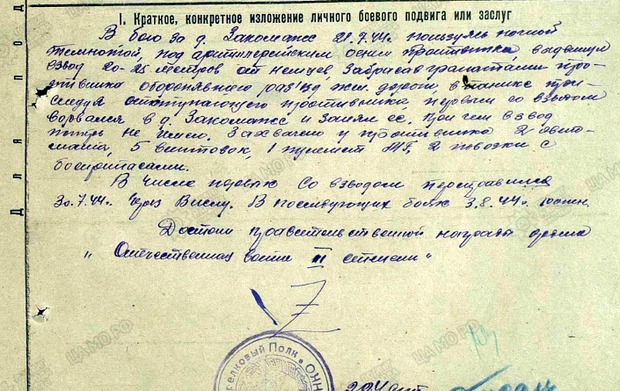 I. Краткое, конкретное изложение личного боевого подвига или заслуг
В бою за д. Закомаже 21.7.44г. пользуясь ночной
темнотой под артиллерийским огнем противника, выдвинул
взвод 20-25 метров от немцев, забросав гранатами про-
тивника оборонявшего жел. дороги, в панике пре-
следуя отступающего противника первым со взводом
ворвался в д. Закомаже и занял ее, при чем взвод
потерь не имел. Захвачено у противника 2 авто-
мата, 5 винтовок, 1 пулемет МГ, 2 повозки с
боеприпасами.
В числе первых со взводом переправился
30.7.44г. через Вислу. В последующих боях 3.8.44г. ранен
Достоин правительственной награды орден
„Отечественная война II степени"
Для под
елковый Полк • ОНН
ЦАМО РФ